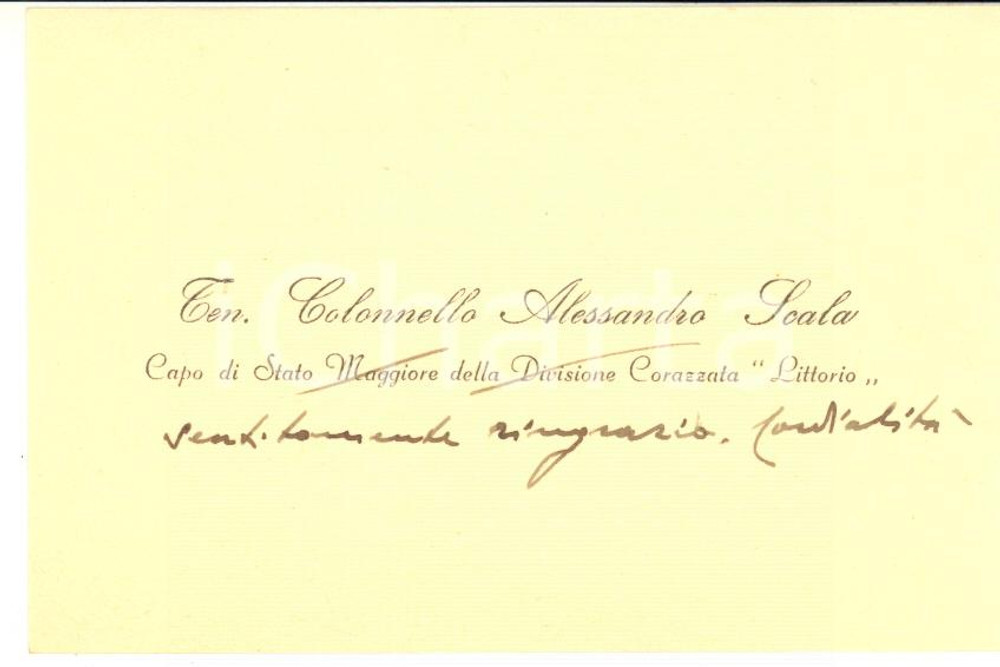 Ten. Colonnello Alessandro Scala
Capo di Stato Maggiore della Divisione Corazzata " Littorio „
sentitamente ringrazio. Cordialità
iCharta